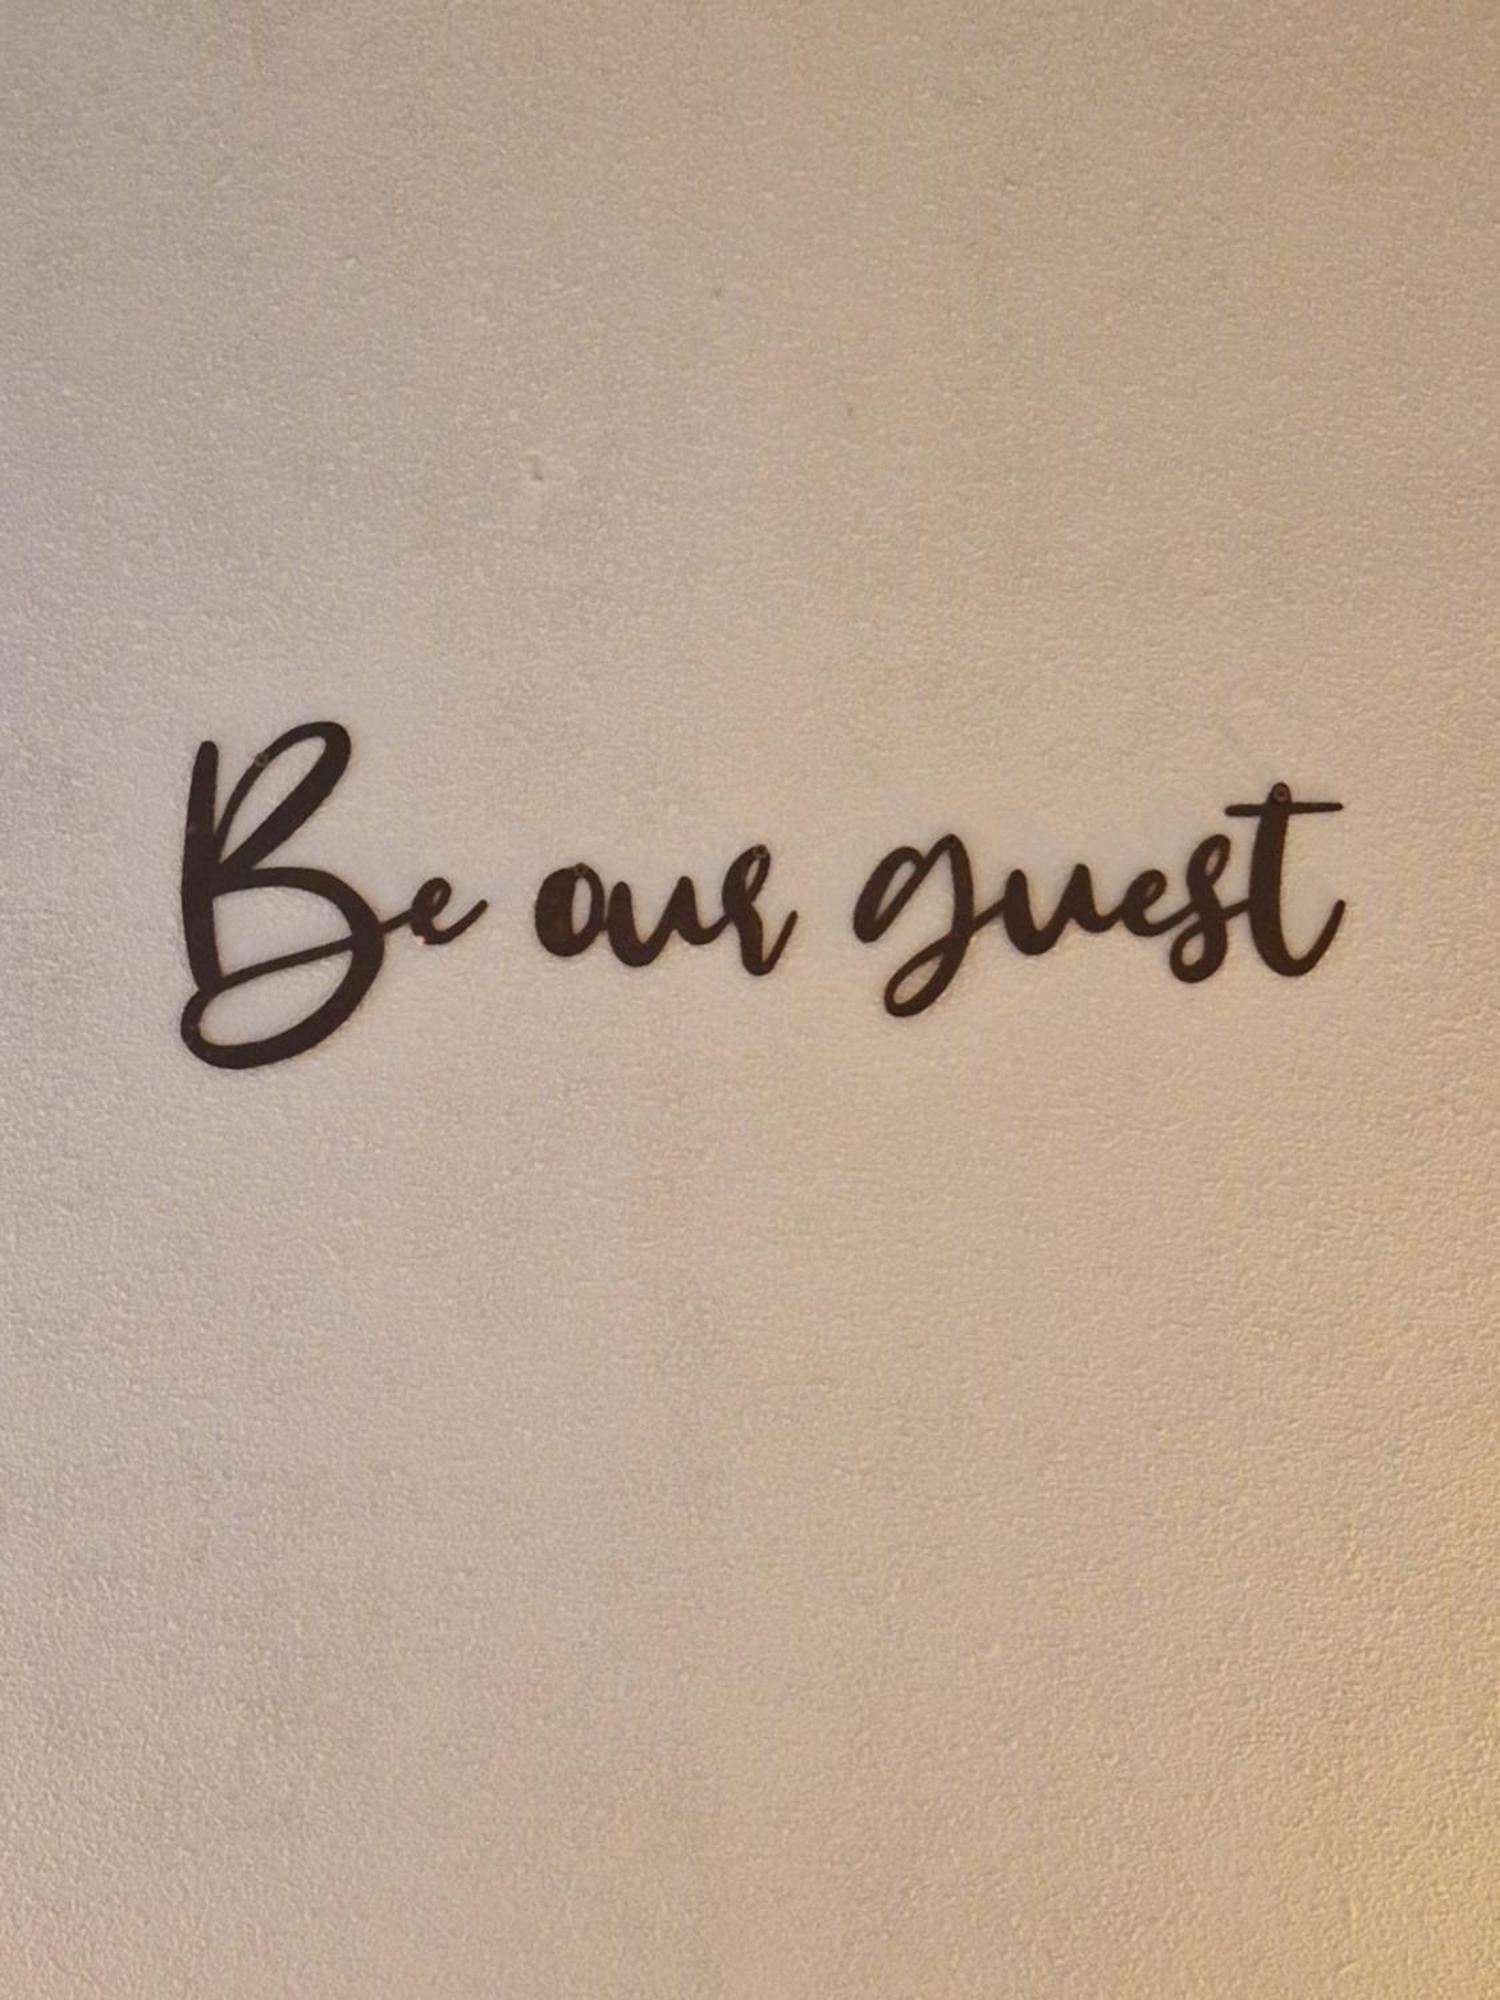 Be our guest